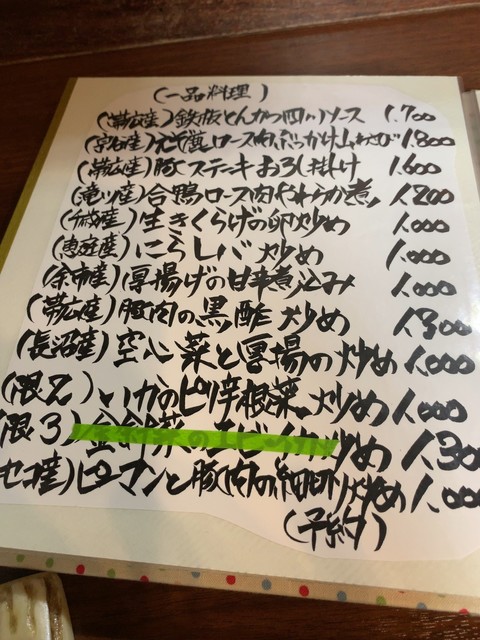 (一品料理)
(帯広産)鉄板とんかつ四川ソース 1.700
ロース肉ぶっかけ山わさび 1.800
(帯広産)豚ステーキおろし掛け 1.600
(滝川産)合鴨ロース肉やわらか煮 1.200
生きくらげの卵炒め 1.000
(恵庭産)にらレバ炒め 1.000
(余市産)厚揚げの甘辛煮込み 1.000
(帯広産)豚肉の黒酢炒め 1.300
(長沼産)空心菜と厚揚の炒め 1.000
(限2)いかのピリ辛根菜炒め 1.000
(限3) 炒め 1.30
セコ産)ピーマンと豚肉の細切り炒め 1.000
(予約)